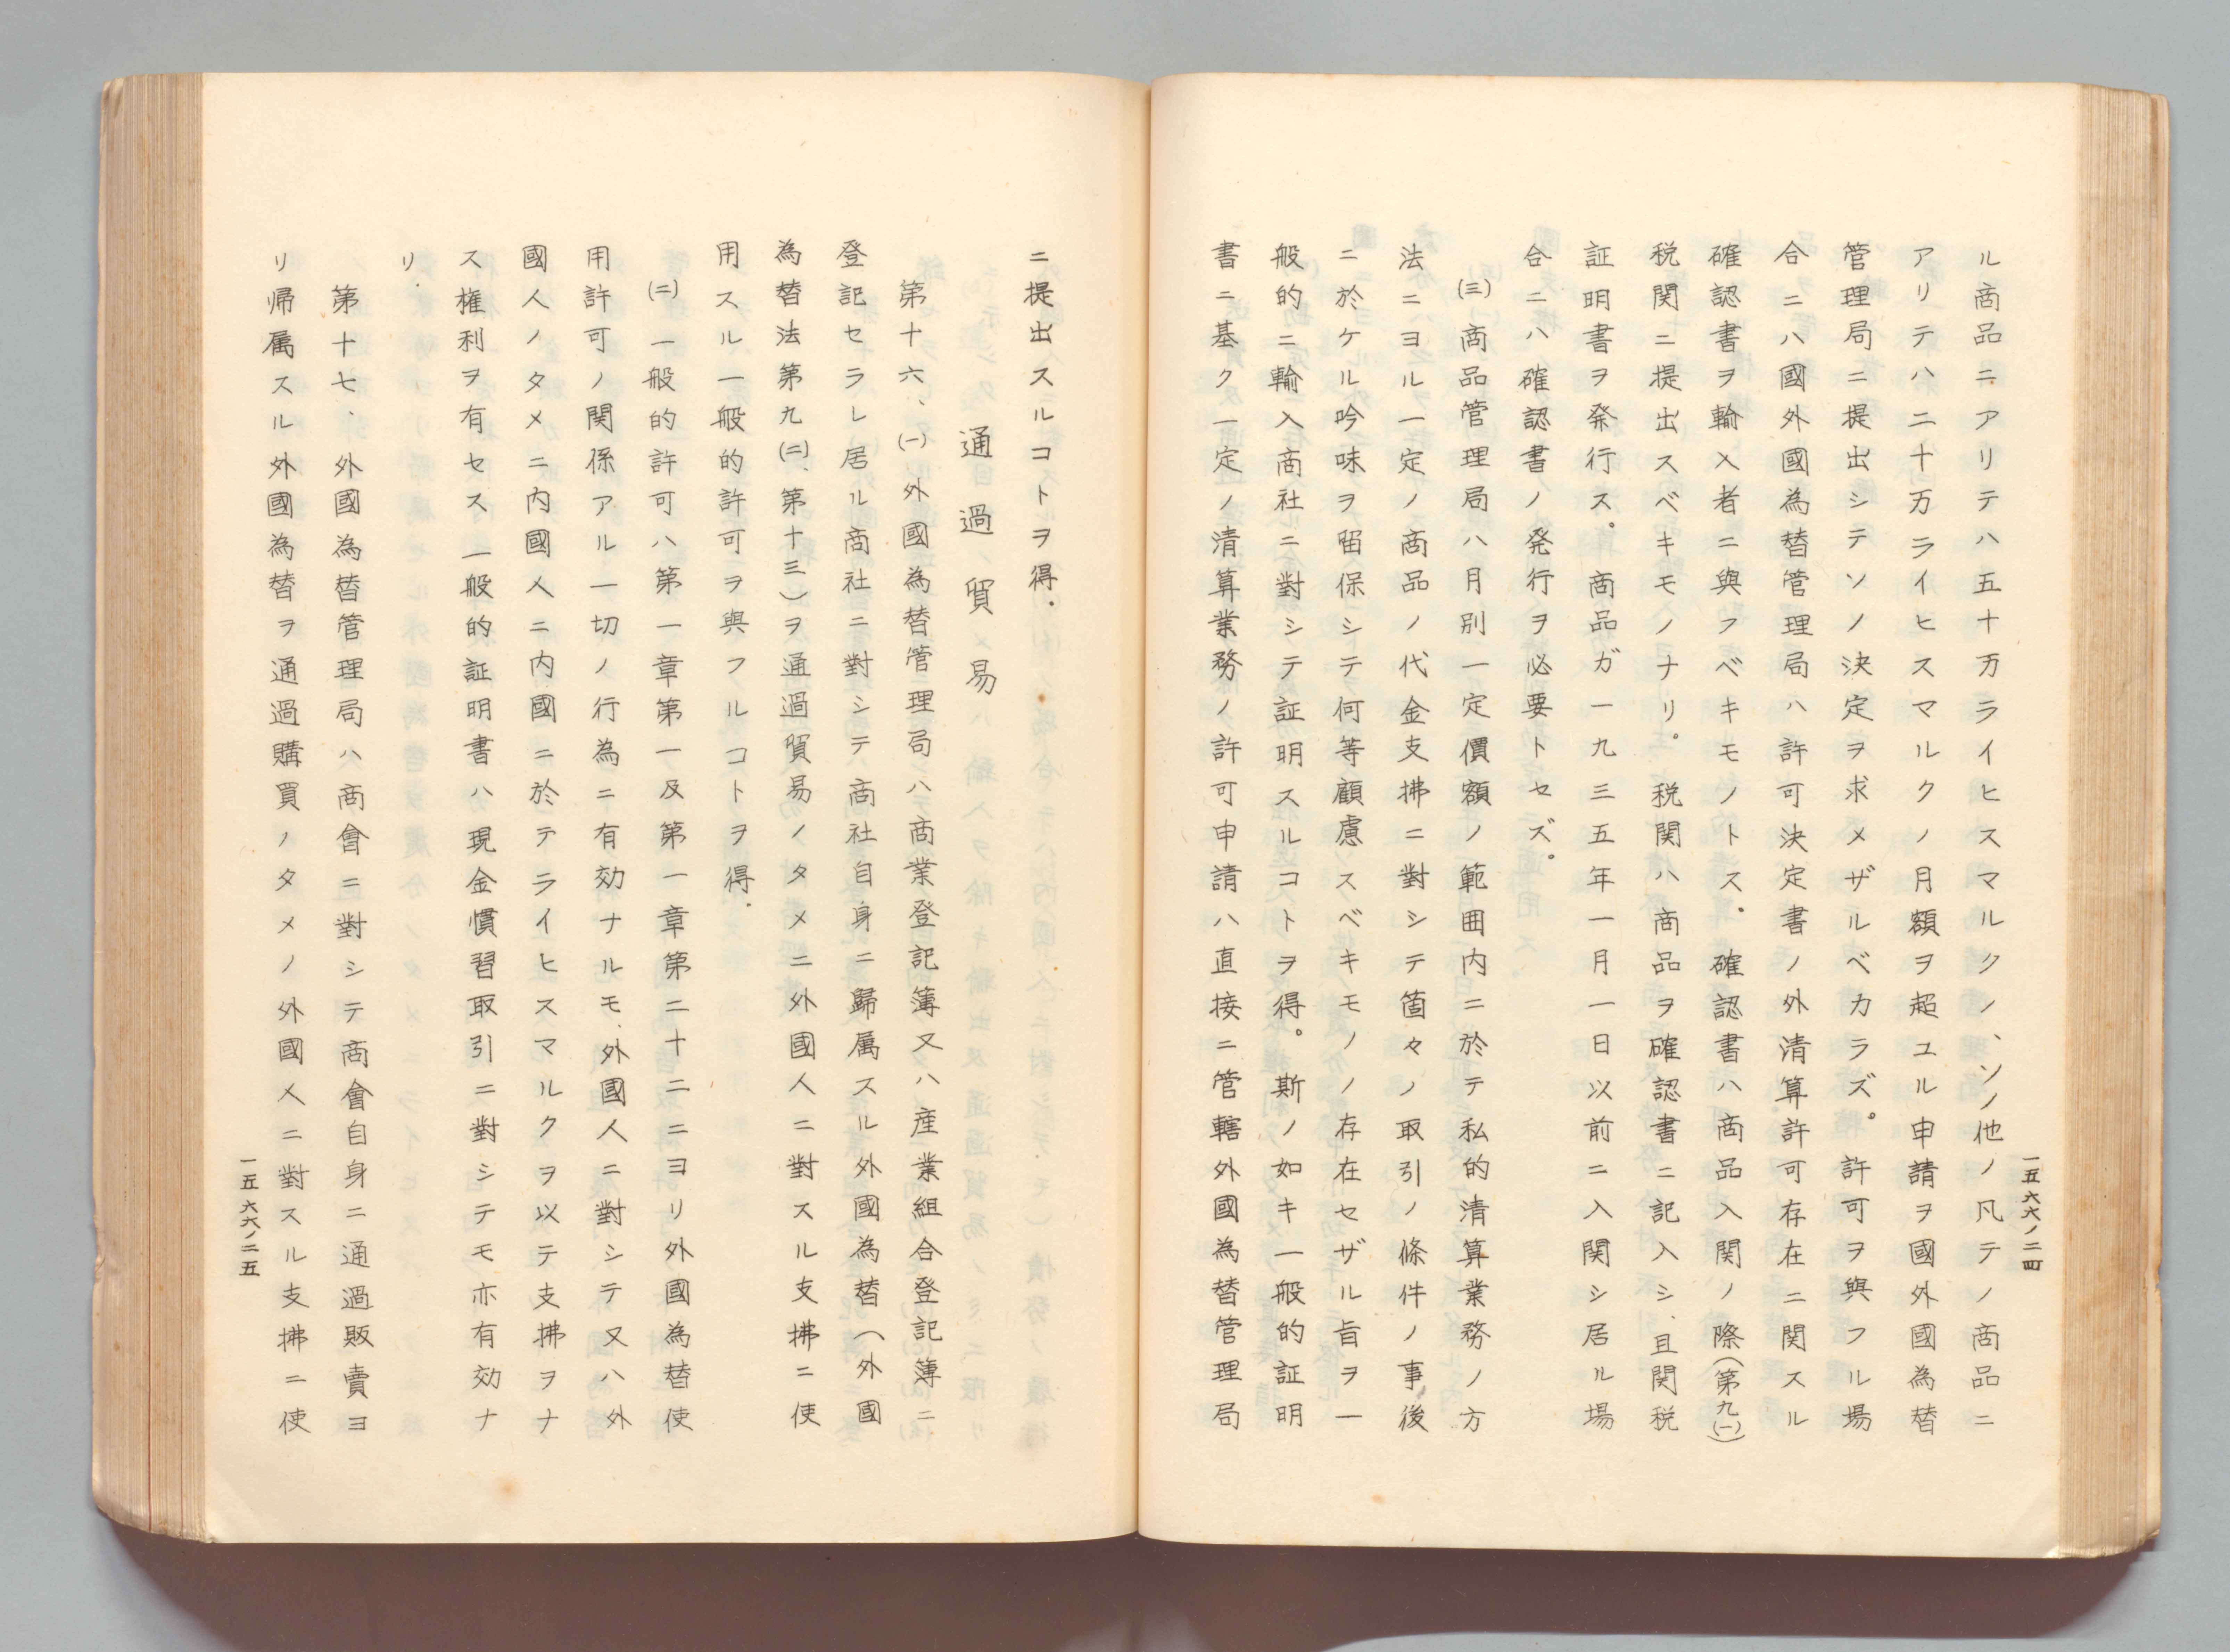 ル商品ニアリテハ五十万ライヒスマルクノ、ソノ他ノ凡テノ商品ニ
アリテハ二十万ライヒスマルクノ月額ヲ超ユル申請ヲ國外國為替
管理局ニ提出シテソノ決定ヲ求メザルベカラズ。許可ヲ與フル場
合ニハ國外國為替管理局ハ許可決定書ノ外清算許可存在ニ関スル
確認書ヲ輸入者ニ與フベキモノトス。確認書ハ商品入関ノ際(第九(一))
税関ニ提出スベキモノナリ。税関ハ商品ヲ確認書ニ記入シ、且関税
証明書ヲ発行ス。商品ガ一九三五年一月一日以前ニ入関シ居ル場
合ニハ確認書ノ発行ヲ必要トセズ。
(三)商品管理局ハ月別一定價額ノ範囲内ニ於テ私的清算業務ノ方
法ニヨル一定ノ商品ノ代金支拂ニ對シテ箇々ノ取引ノ條件ノ事後
ニ於ケル吟味ヲ留保シテ何等顧慮スベキモノノ存在セザル旨ヲ一
般的ニ輸入商社ニ對シテ証明スルコトヲ得。斯ノ如キ一般的証明
書ニ基ク一定ノ清算業務ノ許可申請ハ直接ニ管轄外國為替管理局
一五六六ノ二四
ニ提出スルコトヲ得.
通過貿易
第十六、(一)外國為替管理局ハ商業登記簿又ハ産業組合登記簿ニ
登記セラレ居ル商社ニ對シテ商社自身ニ歸属スル外國為替(外國
為替法第九(二)、第十三)ヲ通過貿易ノタメニ外國人ニ對スル支拂ニ使
用スル一般的許可ヲ與フルコトヲ得.
(二)一般的許可ハ第一章第一及第一章第二十二ニヨリ外國為替使
用許可ノ関係アル一切ノ行為ニ有効ナルモ、外國人ニ對シテ又ハ外
國人ノタメニ内國人ニ内國ニ於テライヒスマルクヲ以テ支拂ヲナ
ス権利ヲ有セス一般的証明書ハ現金慣習取引ニ對シテモ亦有効ナ
リ.
第十七、外國為替管理局ハ商會ニ對シテ商會自身ニ通過販賣ヨ
リ帰属スル外國為替ヲ通過購買ノタメノ外國人ニ對スル支拂ニ使
一五六六ノ二五